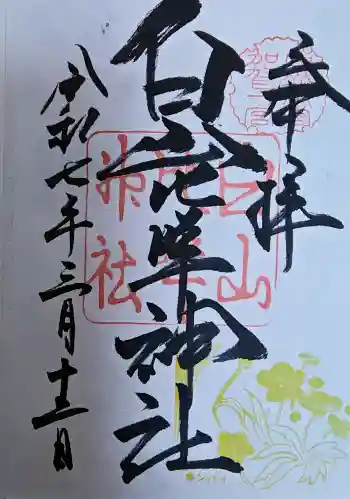 奉拝
加賀一宮
白山比咩神社
白山比咩神社
令和七年三月十二日